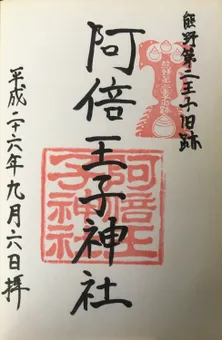 熊野第二王子旧跡
阿倍王子神社
阿倍王子神社
平成二十六年九月六日拝